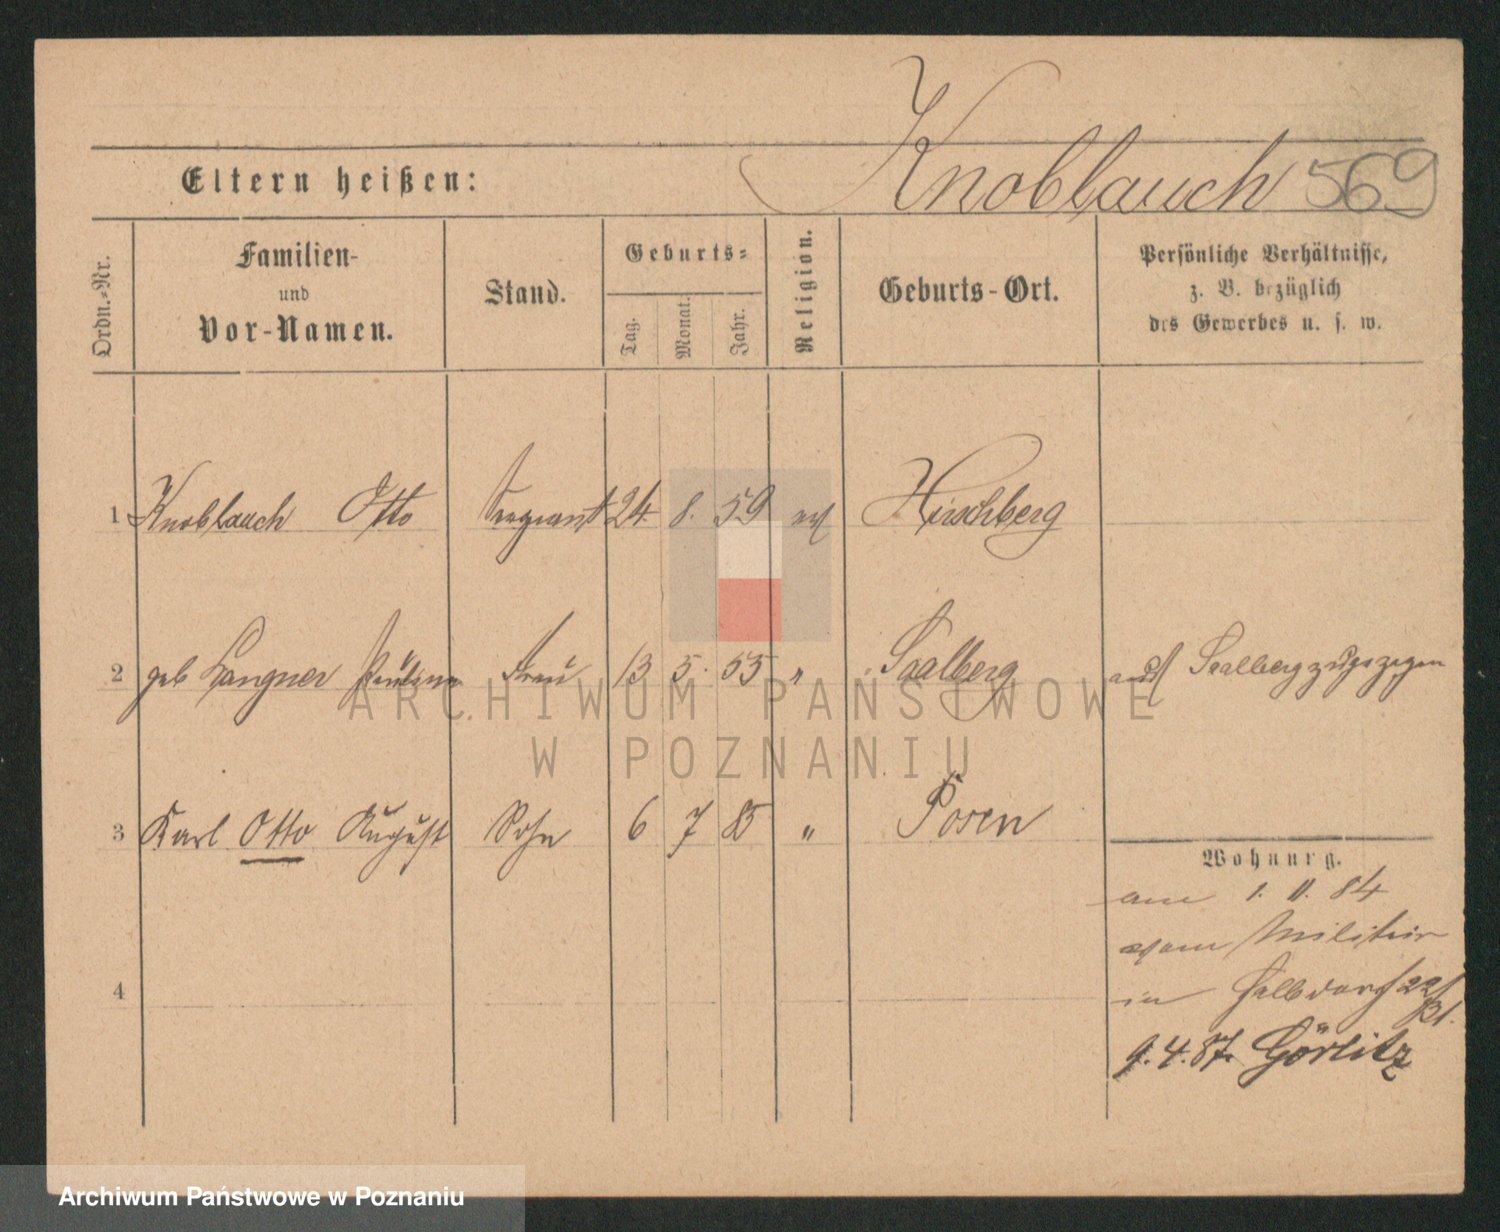 Knoblauch 569
Eltern heißen:
Ordn.-Nr.
Familien-
und
Vor-Namen.
Stand.
Geburts-
Tag.
Monat.
Jahr.
Religion.
Geburts-Ort.
Persönliche Verhältnisse,
z. B. bezüglich
des Gewerbes u. s. w.
1 Knoblauch Otto Sergeant 24. 8. 59 Hirschberg
2 geb Langner Pauline Frau 13 5. 55 " Saalberg aus Saalberg zugezogen
3 Karl Otto August Sohn 6 7 85 " Posen
4
Wohnung.
am 1. 11. 84
vom Militair
in 22/
9. 4. 87. Görlitz
ARCHIWUM PAŃSTWOWE
W POZNANIU
Archiwum Państwowe w Poznaniu